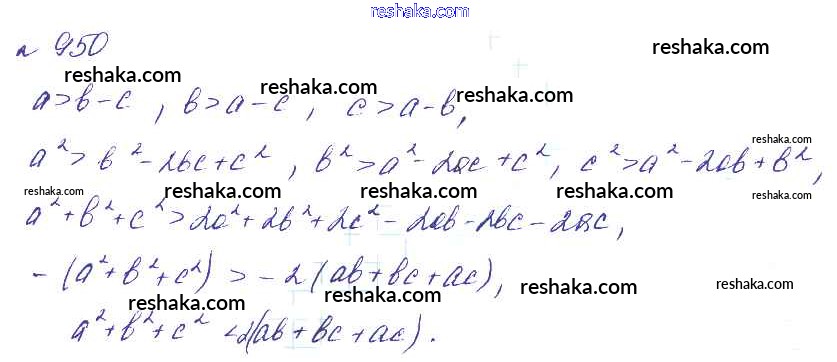 reshaka.com
№ 950
reshaka.com
reshaka.com reshaka.com reshaka.com
a > b - c , b > a - c , c > a - b,
reshaka.com
a² > b² - 2bc + c² , b² > a² - 2ac + c² , c² > a² - 2ab + b² ,
reshaka.com reshaka.com reshaka.com reshaka.com reshaka.com
a² + b² + c² > 2a² + 2b² + 2c² - 2ab - 2bc - 2ac,
reshaka.com reshaka.com
- (a² + b² + c²) > - 2 (ab + bc + ac),
reshaka.com reshaka.com reshaka.com
a² + b² + c² < 2(ab + bc + ac).
reshaka.com